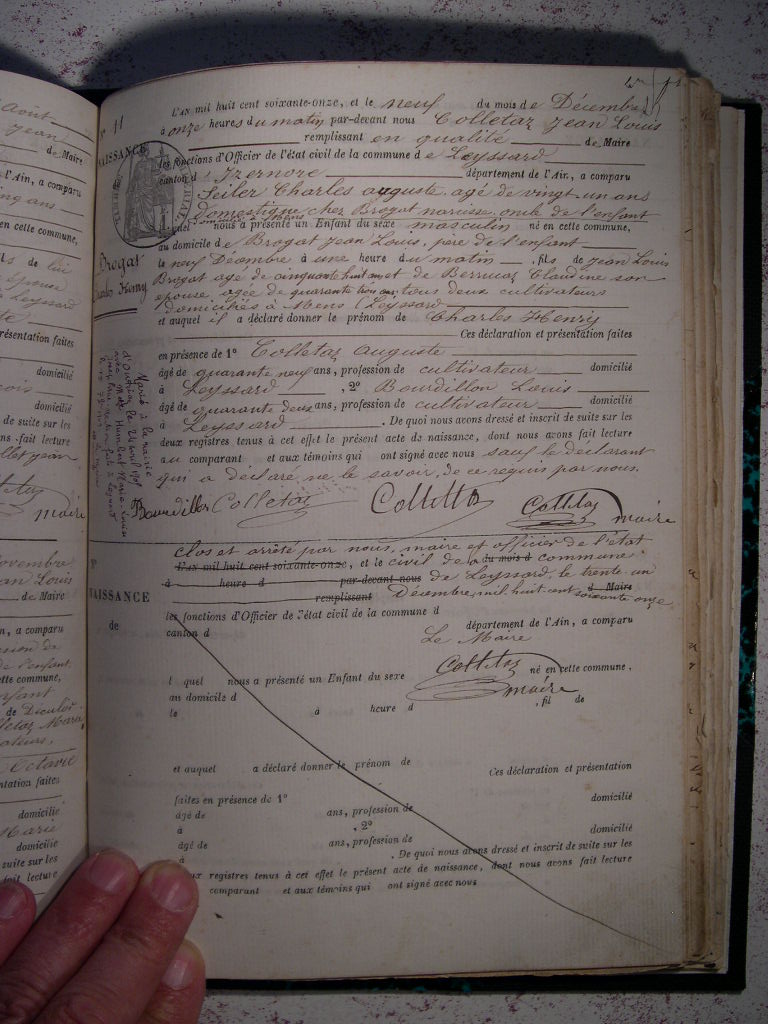 Août
Jean
de Maire
l'Ain, a comparu
ans
en cette commune,
de lui
épouse
à Leyssard
résentation faites
domicilié
domicilié
de suite sur les
fait lecture
Jean
maire
Novembre
Jean Louis
de Maire
n, a comparu
de
de l'enfant
tte commune,
enfant
de
Colletaz Marie
cultivateurs,
Octavie
ntation faites
domicilié
Marie
domicilié
suite sur les
fait lecture
N° 11
NAISSANCE
Brogat
Charles Henry
Marié à la mairie
d'Oudrias le 24 avril 1901
avec Melle Humbert Marie Louise
L'AN mil huit cent soixante-onze, et le neuf du mois de Décembre
à onze heures du matin par-devant nous Colletaz Jean Louis
remplissant en qualité de Maire
les fonctions d'Officier de l'état civil de la commune de Leyssard
canton d'Izernore département de l'Ain, a comparu
Seiler Charles auguste agé de vingt un ans
Domestique chez Brogat narcisse, oncle de l'enfant
lequel nous a présenté un Enfant du sexe masculin né en cette commune,
au domicile de Brogat Jean Louis, père de l'enfant
le neuf Décembre à une heure du matin, fils de Jean Louis
Brogat agé de cinquante huit ans et de Berruaz Claudine son
épouse, agée de quarante trois ans, tous deux cultivateurs
Domiciliés à Mens (Leyssard
et auquel il a déclaré donner le prénom de Charles Henry
Ces déclaration et présentation faites
en présence de 1° Colletaz Auguste
âgé de quarante neuf ans, profession de cultivateur domicilié
à Leyssard, 2° Bourdillon Louis
âgé de quarante deux ans, profession de cultivateur domicilié
à Leyssard. De quoi nous avons dressé et inscrit de suite sur les
deux registres tenus à cet effet le présent acte de naissance, dont nous avons fait lecture
au comparant et aux témoins qui ont signé avec nous sauf le déclarant
qui a déclaré ne le savoir, de ce requis par nous.
Bourdillon Colletaz Colletaz Colletaz maire
clos et arrêté par nous, maire et officier de l'état
N° L'AN mil huit cent soixante-onze, et le civil de la du mois d commune
à heure d par-devant nous de Leyssard, le trente-un
NAISSANCE remplissant Décembre, mil huit cent soixante onze. d Maire
les fonctions d'Officier de l'état civil de la commune d
de canton d département de l'Ain, a comparu
Le Maire
Colletaz
l quel nous a présenté un Enfant du sexe né en cette commune,
au domicile d maire
le à heure d , fil de
et auquel a déclaré donner le prénom de
Ces déclaration et présentation
faites en présence de 1° domicilié
âgé de ans, profession de
à , 2° domicilié
âgé de ans, profession de
à . De quoi nous avons dressé et inscrit de suite sur les
ux registres tenus à cet effet le présent acte de naissance, dont nous avons fait lecture
comparant et aux témoins qui ont signé avec nous